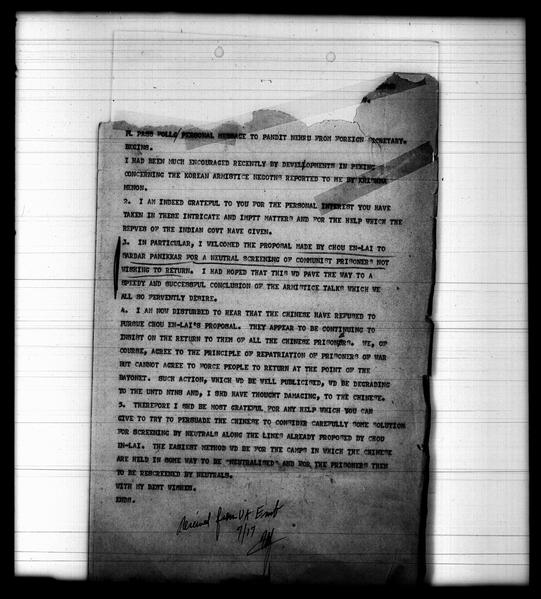 PL PASS FOLLG PERSONAL MESSAGE TO PANDIT NEHRU FROM FOREIGN SECRETARY.
BEGINS.
I HAD BEEN MUCH ENCOURAGED RECENTLY BY DEVELOPMENTS IN PEKING
CONCERNING THE KOREAN ARMISTICE NEGOTNS REPORTED TO ME BY KRISHNA
MENON.
2. I AM INDEED GRATEFUL TO YOU FOR THE PERSONAL INTEREST YOU HAVE
TAKEN IN THESE INTRICATE AND IMPTT MATTERS AND FOR THE HELP WHICH THE
REPVES OF THE INDIAN GOVT HAVE GIVEN.
3. IN PARTICULAR, I WELCOMED THE PROPOSAL MADE BY CHOU EN-LAI TO
SARDAR PANIKKAR FOR A NEUTRAL SCREENING OF COMMUNIST PRISONERS NOT
WISHING TO RETURN. I HAD HOPED THAT THIS WD PAVE THE WAY TO A
SPEEDY AND SUCCESSFUL CONCLUSION OF THE ARMISTICE TALKS WHICH WE
ALL SO FERVENTLY DESIRE.
4. I AM NOW DISTURBED TO HEAR THAT THE CHINESE HAVE REFUSED TO
PURSUE CHOU EN-LAI'S PROPOSAL. THEY APPEAR TO BE CONTINUING TO
INSIST ON THE RETURN TO THEM OF ALL THE CHINESE PRISONERS. WE, OF
COURSE, AGREE TO THE PRINCIPLE OF REPATRIATION OF PRISONERS OF WAR
BUT CANNOT AGREE TO FORCE PEOPLE TO RETURN AT THE POINT OF THE
BAYONET. SUCH ACTION, WHICH WD BE WELL PUBLICISED, WD BE DEGRADING
TO THE UNTD NTNS AND, I SHD HAVE THOUGHT DAMAGING, TO THE CHINESE.
5. THEREFORE I SHD BE MOST GRATEFUL FOR ANY HELP WHICH YOU CAN
GIVE TO TRY TO PERSUADE THE CHINESE TO CONSIDER CAREFULLY SOME SOLUTION
FOR SCREENING BY NEUTRALS ALONG THE LINES ALREADY PROPOSED BY CHOU
EN-LAI. THE EASIEST METHOD WD BE FOR THE CAMPS IN WHICH THE CHINESE
ARE HELD IN SOME WAY TO BE "NEUTRALISED" AND FOR THE PRISONERS THEN
TO BE RESCREENED BY NEUTRALS.
WITH MY BEST WISHES.
ENDS.
Received from UK
7/17